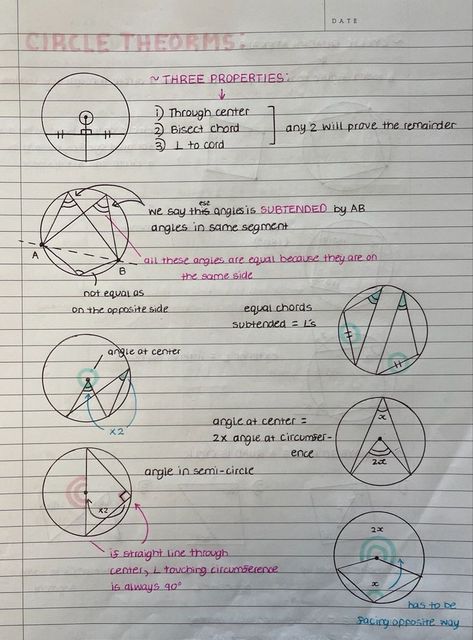 DATE
CIRCLE THEORMS:
~ THREE PROPERTIES:
↓
1) Through center
2) Bisect chord
3) L to cord
any 2 will prove the remainder
we say this ese angles is SUBTENDED by AB
angles in same segment
A
B
all these angles are equal because they are on
the same side
not equal as
on the opposite side
equal chords
subtended = L's
angle at center
x2
angle at center =
2x angle at circumfer-
ence
x
2x
angle in semi-circle
x2
is straight line through
center, L touching circumference
is always 90°
2x
x
has to be
facing opposite way